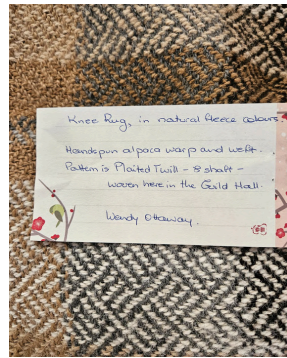 Knee Rug, in natural fleece colours.
Handspun alpaca warp and weft.
Pattern is Plaited Twill - 8 shaft -
woven here in the Guild Hall.
Wendy Ottaway.